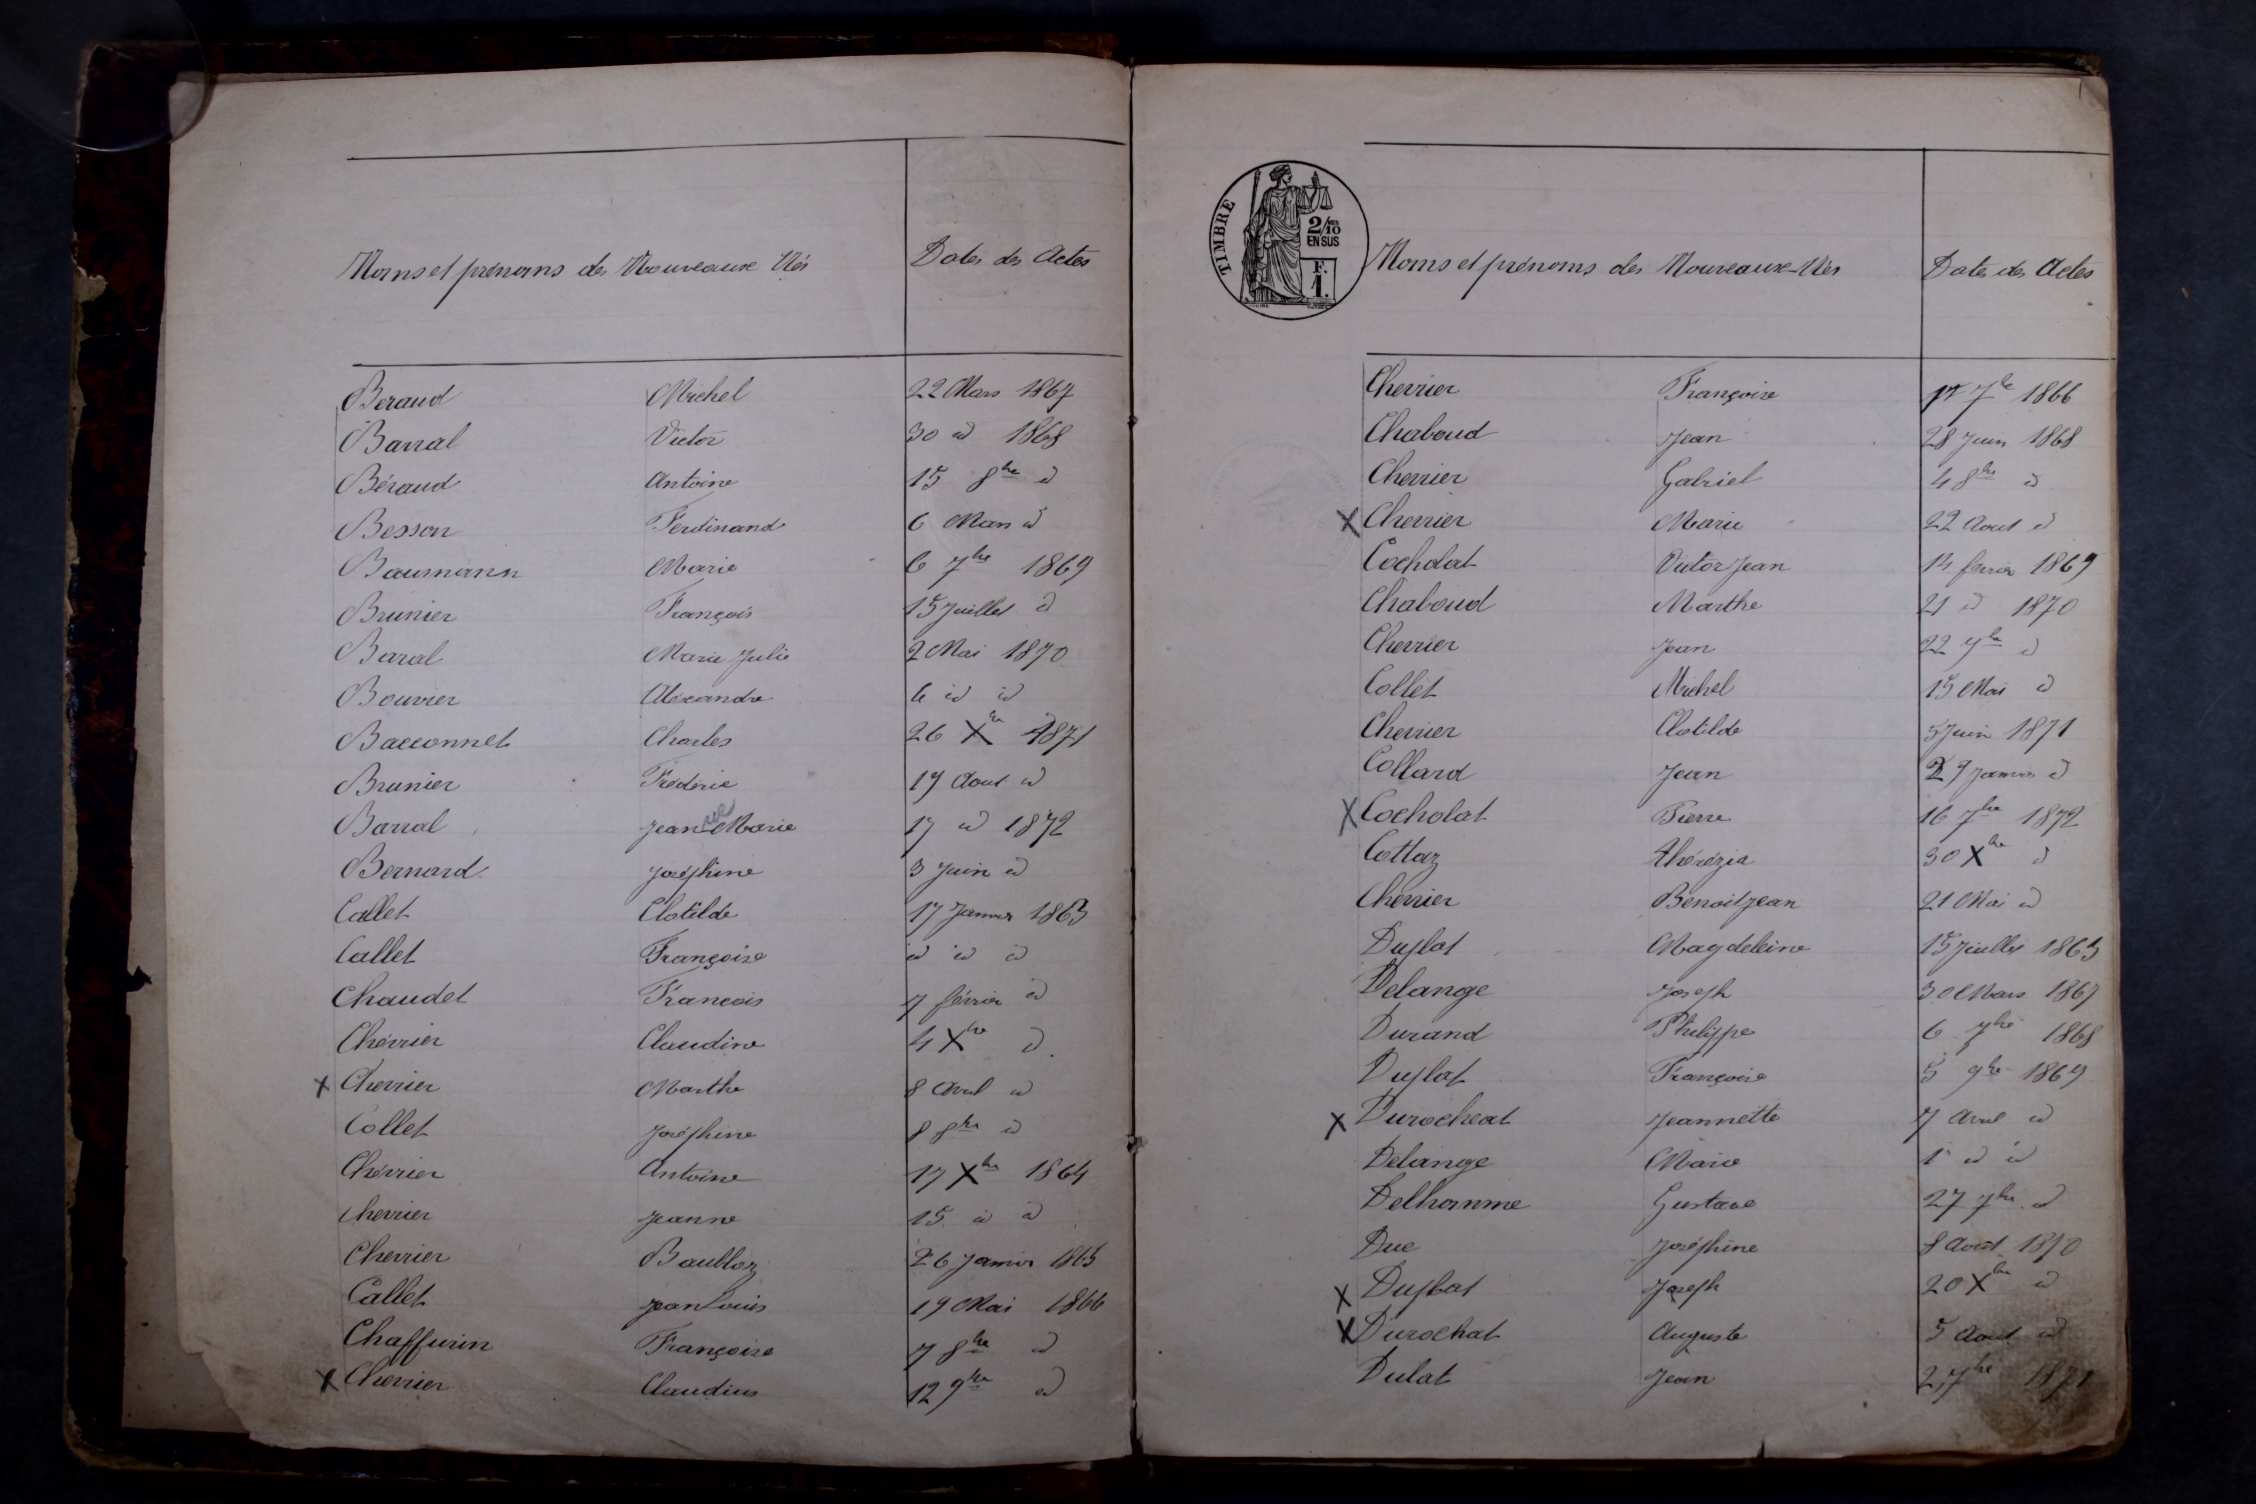 Noms et prénoms des Nouveaux Nés Dates des Actes
Beraud Michel 22 Mars 1867
Barral Victor 30 id 1868
Béraud Antoine 15 8bre id
Besson Ferdinand 6 Mars id
Baumann Marie 6 7bre 1869
Brunier François 15 Juillet id
Baral Marie Julie 2 Mai 1870
Bouvier Alexandre 6 id id
Bacconnet Charles 26 Xbre 1871
Brunier Fréderic 19 Aout id
Barral Jean Marie 17 id 1872
Bernard Joséphine 3 Juin id
Callet Clotilde 17 Janvier 1863
Callet Françoise id id id
Chaudet Francois 7 février id
Chérrier Claudine 4 Xbre id
X Cherrier Marthe 8 Avril id
Collet Joséphine 8 8bre id
Chérrier Antoine 17 Xbre 1864
Cherrier Jeanne 15 id id
Cherrier 26 Janvier 1865
Callet Jean Louis 19 Mai 1866
Chaffurin Françoise 7 8bre id
X Cherrier Claudius 12 9bre id
TIMBRE
2/10 EN SUS
F. 1.
Noms et prénoms des Nouveaux-Nés Date des Actes
Cherrier Françoise 7bre 1866
Chaboud Jean 28 Juin 1868
Cherrier Gabriel 4 8bre id
X Cherrier Marie 22 Aout id
Cocholat Victor Jean 14 février 1869
Chaboud Marthe 21 id 1870
Cherrier Jean 22 9bre id
Collet Michel 15 Mai id
Cherrier Clotilde 5 Juin 1871
Collard Jean 29 Janvier id
X Cocholat Pierre 16 7bre 1872
Cottaz Thérézia 30 Xbre id
Cherrier Benoit Jean 21 Mai id
Duplat Magdeleine 15 Juillet 1863
Delange Joseph 30 Mars 1867
Durand Philippe 6 7bre 1868
Duplat Françoise 5 9bre 1869
X Durocheat Jeannette 7 Avril id
Delange Marie 1er id id
Delhomme Gustave 27 7bre id
Duc Joséphine 8 Aout 1870
X Duplat Joseph 20 Xbre id
X Durochat Auguste 5 Aout id
Dulat Jean 2 7bre 1871